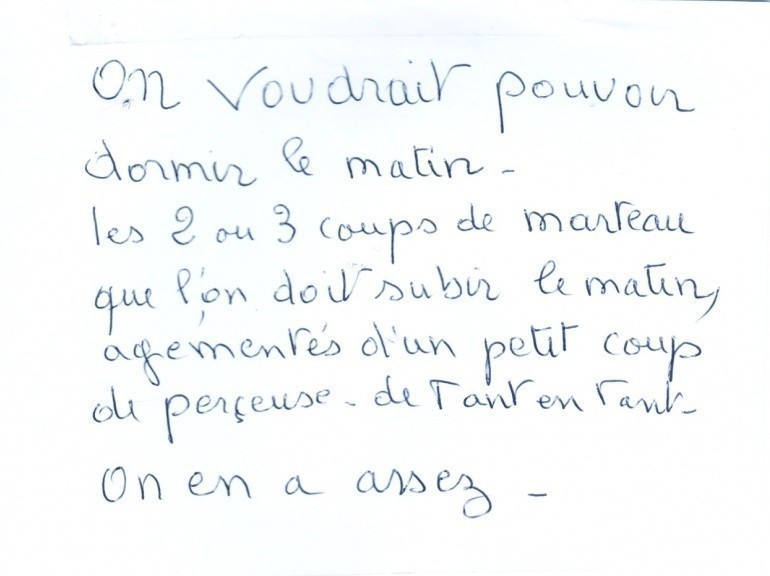 On voudrait pouvoir
dormir le matin -
les 2 ou 3 coups de marteau
que l'on doit subir le matin,
agémentés d'un petit coup
de perçeuse - de tant en tant -
On en a assez -